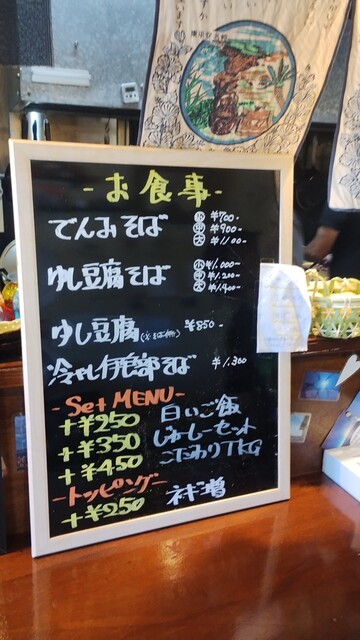 - お食事 -
でんみそば
小 ¥700.-
中 ¥900-
大 ¥1100-
ゆし豆腐そば
小 ¥1.000-
中 ¥1.200-
大 ¥1.400-
ゆし豆腐 ¥850-
冷やし伊部そば ¥1.300
- Set MENU -
+¥250 白いご飯
+¥350 じゅーしーセット
+¥450 こだわりTKG
- トッピング -
+¥250 ネギ増